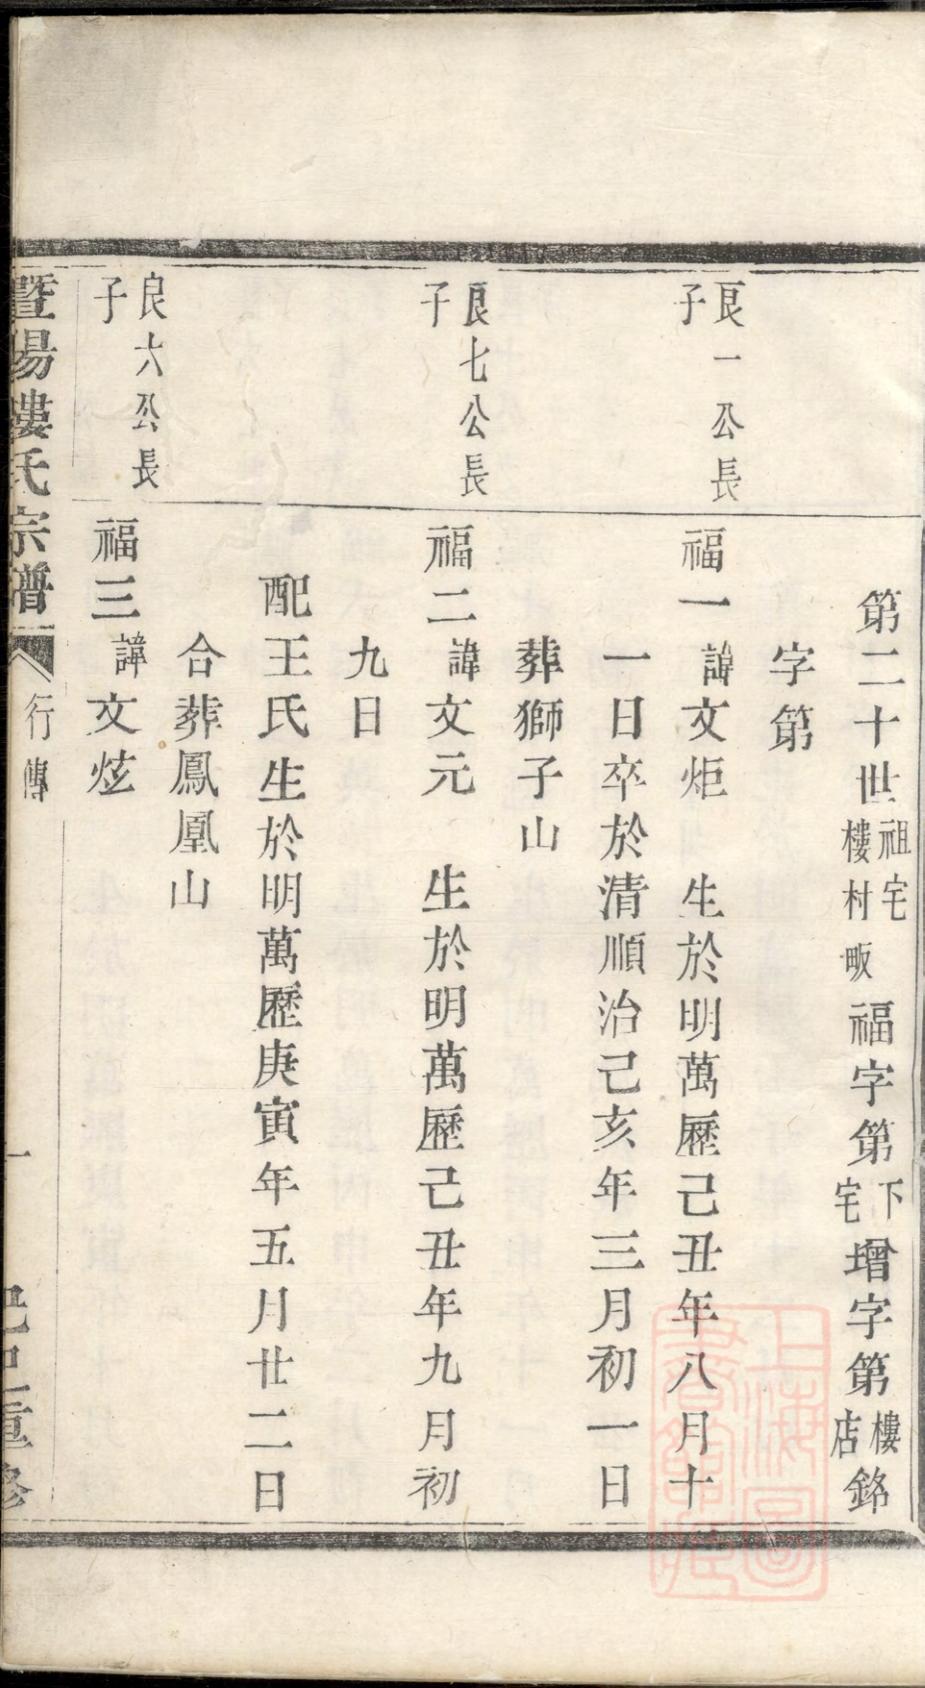 第二十世祖宅樓村畈福字第下宅增字第樓店銘
字第
良一公長
子
福一諱文炬 生於明萬歷己丑年八月十
一日卒於清順治己亥年三月初一日
葬獅子山
良七公長
子
福二諱文元 生於明萬歷己丑年九月初
九日
配王氏生於明萬歷庚寅年五月廿二日
合葬鳳凰山
良六公長
子
福三諱文炫
暨陽樓氏宗譜 行傳 一 重修
上海圖書館藏